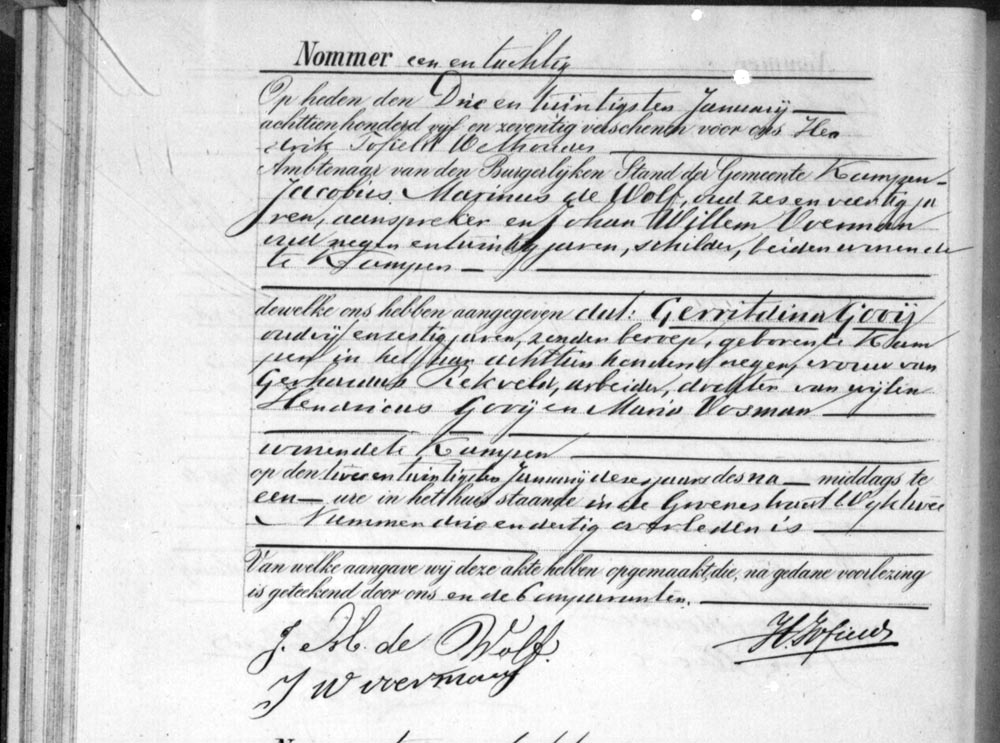 Nommer een en tachtig
Op heden den Drie en twintigsten Januarij
achttienhonderd vijf en zeventig verschenen voor ons Hen
drik Wethouder
Ambtenaar van den Burgerlijken Stand der Gemeente Kampen
Jacobus Marinus de Wolf, oud zes en veertig ja
ren, aanspreker en Johan Willem Voerman
oud negen en twintig jaren, schilder, beiden wonende
te Kampen
dewelke ons hebben aangegeven dat: Gerritdina Gooij
oud vijf en zestig jaren, zonder beroep, geboren te Kam
pen in het jaar achttien honderd negen, vrouw van
Gerhardus Rekveld, arbeider, dochter van wijlen
Hendricus Gooij en Maria Vosman
wonende te Kampen
op den twee en twintigsten Januarij dezes jaars des na middags te
een ure in het huis staande in de Groenestraat Wijk twee
Nummer drie en dertig overleden is
Van welke aangave wij deze akte hebben opgemaakt, die, na gedane voorlezing
is geteekend door ons en de Comparanten.
J. M. de Wolf.
J W voerman